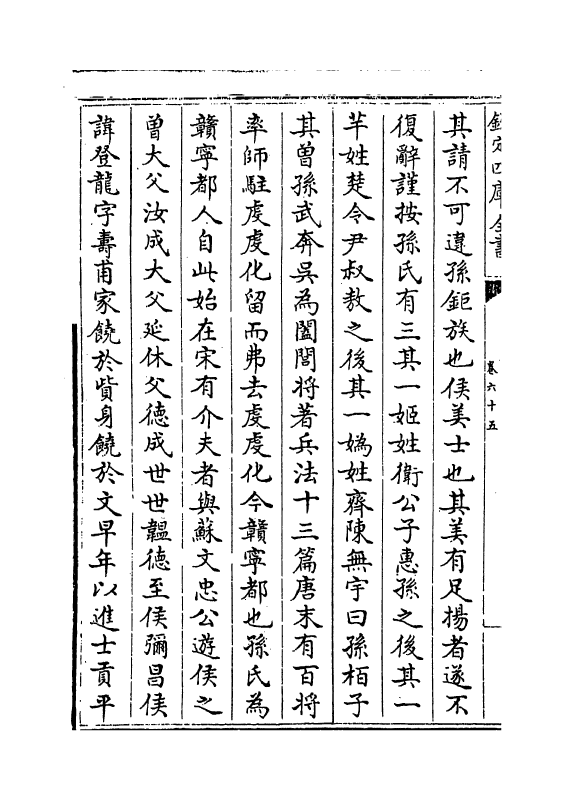 欽定四庫全書
卷六十五
其請不可違孫鉅族也侯美士也其美有足揚者遂不
復辭謹按孫氏有三其一姬姓衛公子惠孫之後其一
芊姓楚令尹叔敖之後其一媯姓齊陳無宇曰孫栢子
其曾孫武奔吳為闔閭將著兵法十三篇唐末有百將
率師駐虔虔化留而弗去虔虔化今贛寧都也孫氏為
贛寧都人自此始在宋有介夫者與蘇文忠公遊侯之
曾大父汝成大父延休父德成世世韞德至侯彌昌侯
諱登龍字壽甫家饒於貲身饒於文早年以進士貢平